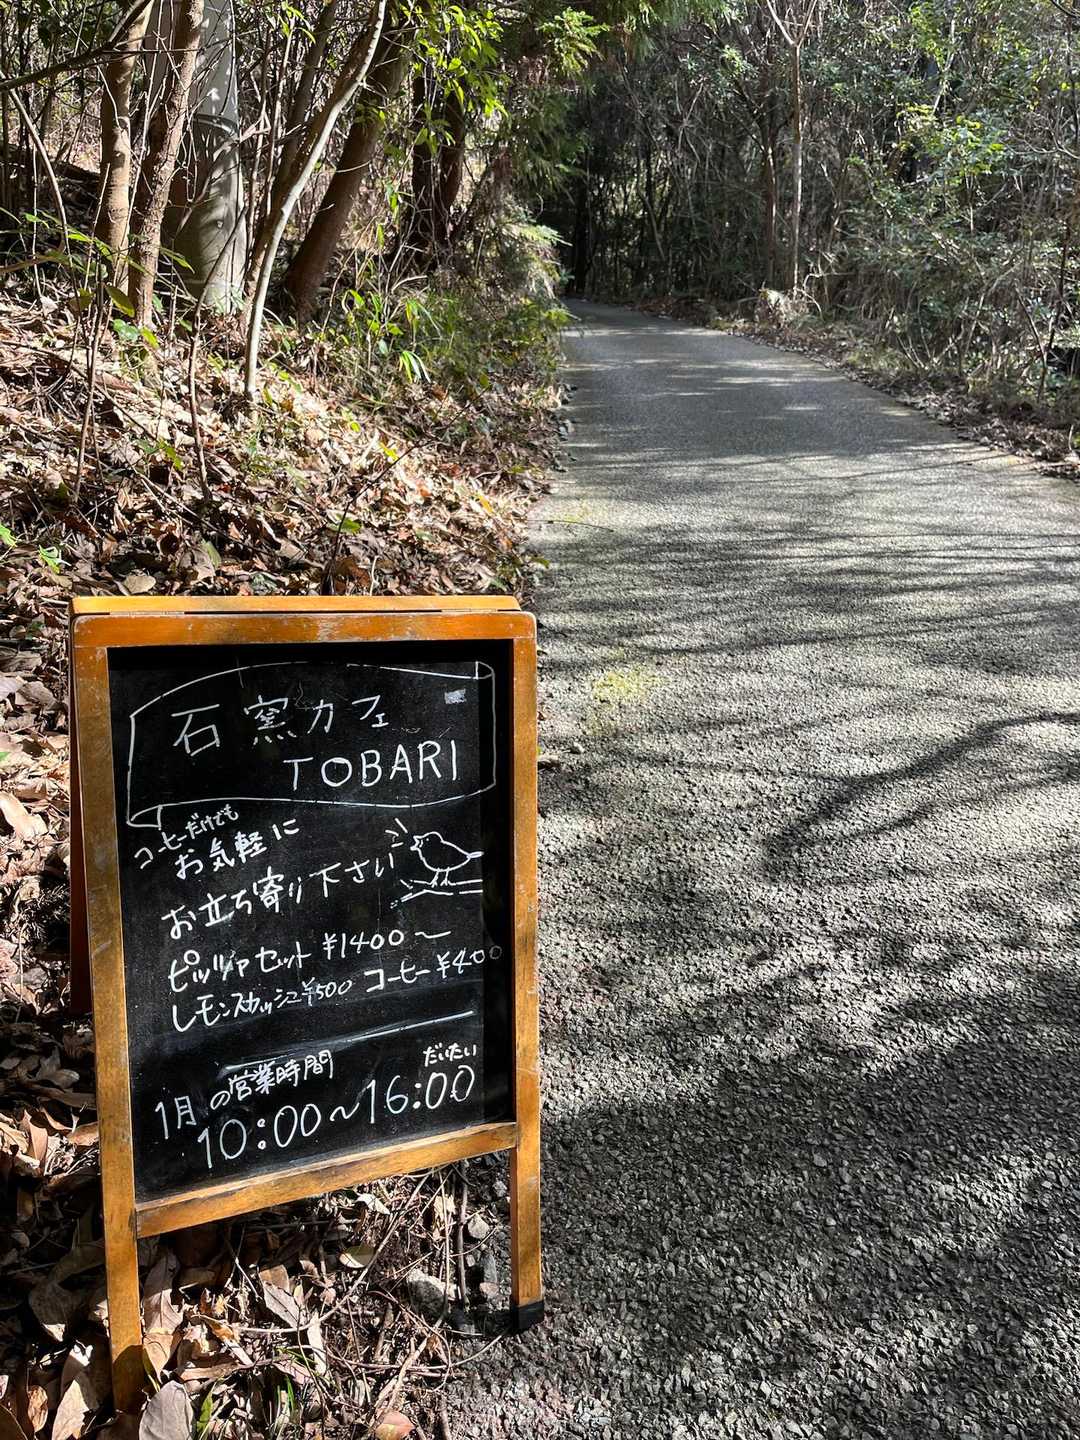 石窯カフェ
TOBARI
コーヒーだけでも
お気軽に
お立ち寄り下さい
ピッツァセット ¥1400〜
レモンスカッシュ¥500 コーヒー¥400
1月の営業時間 だいたい
10:00〜16:00